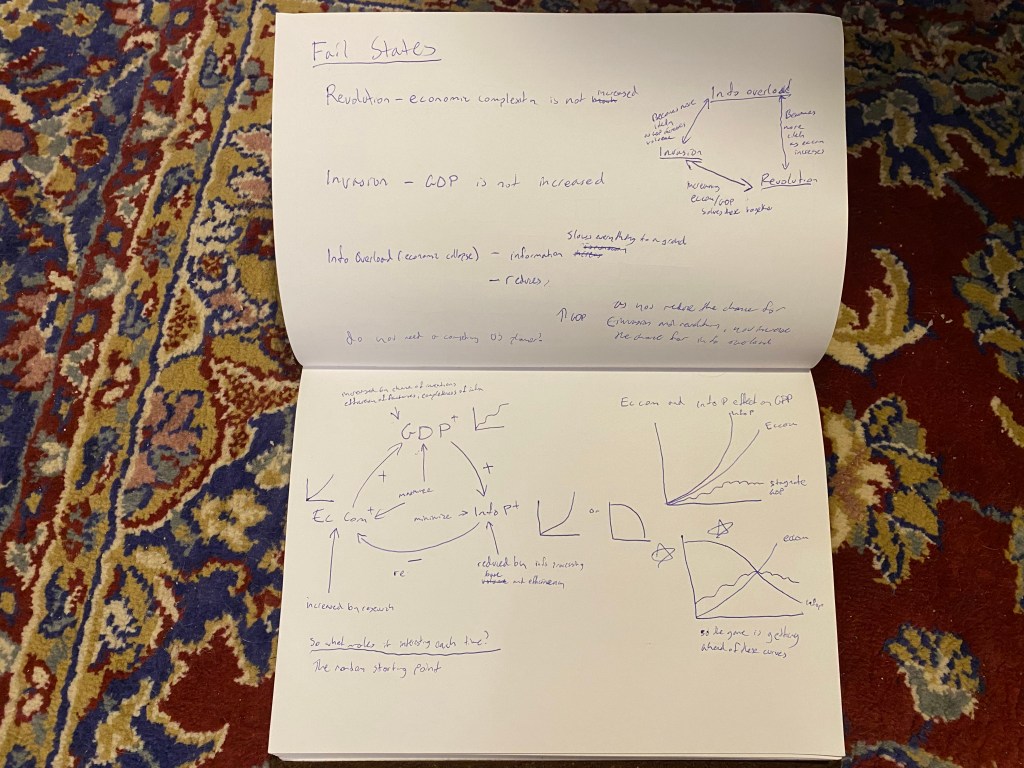 Fail States
Revolution – economic complexity is not increased
Info overload
Becomes more
likely
Becomes
more
likely
as eccom
increases
Invasion
Revolution
Increasing
eccom/GDP
solves these together
Invasion – GDP is not increased
slows everything to a grind
Info Overload (economic collapse) – information
– reduces,
↑ GDP
as you reduce the chance for
invasion and revolution, you increase
the chance for info overload
do you need a competing US planet?
increased by chance of inventions
efficiency of factories, completeness of info
GDP+
+
+
maximize
Ec Com+
minimize
Info P+
re –
increased by research
reduced by info processing
type
and efficiency
or
So what makes it interesting each time?
The random starting point
Ec com and info P effect on GDP
info P
Eccom
stagnate
GDP
eccom
infop
so the game is getting
ahead of these curves